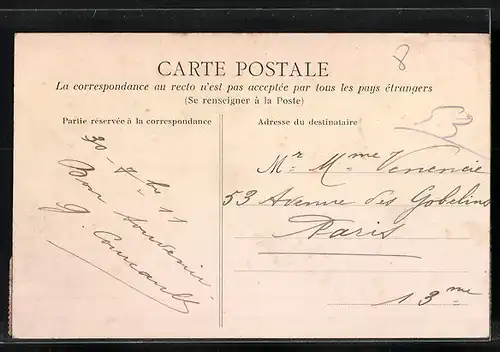 8
CARTE POSTALE
La correspondance au recto n'est pas acceptée par tous les pays étrangers
(Se renseigner à la Poste)
Partie réservée à la correspondance
30-7-11
Bon souvenir
G.
Adresse du destinataire
Mr Mme Venencie
53 Avenue des Gobelins
Paris
13me